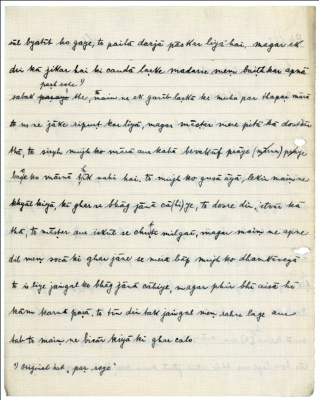 sāl byatit ho gaye, to pailā darjā pās kar liyā hai, magar ek
din kā jikar hai ki candā laṛke madarse mem baiṭhkar apnā
paṛh rahe ¹⁾
sabak the, to main ne ek garib laṛkā ke muha par thapaṛ mārā
to us ne jāke riporṭ kar diyā, magar māsṭar mere pitā kā dostdār
thā, to sirph mujh ko mārā aur kahā bevakūf prāye
ko mārnā ṭhik nahi hai. to mujh ko gusā āyā, lekin main ne
khyāl kiyā, ki ghar se bhāg jānā cā(h)iye, to dosre din itvār kā
thā, to māsṭar aur iskūl se chuṭṭi mil gai, magar main ne apne
dil mem socā ki ghar jāne se merā bāp mujh ko dhamkāvegā
to is liye jangal ko bhāg jānā cāhiye, magar phir bhi aisā hi
kām karnā paṛā, to tin din tak jangal mem rahne lage aur
tab to main ne bicār kiyā ki ghar calo.
¹⁾ Original hat „paṛ rayo"